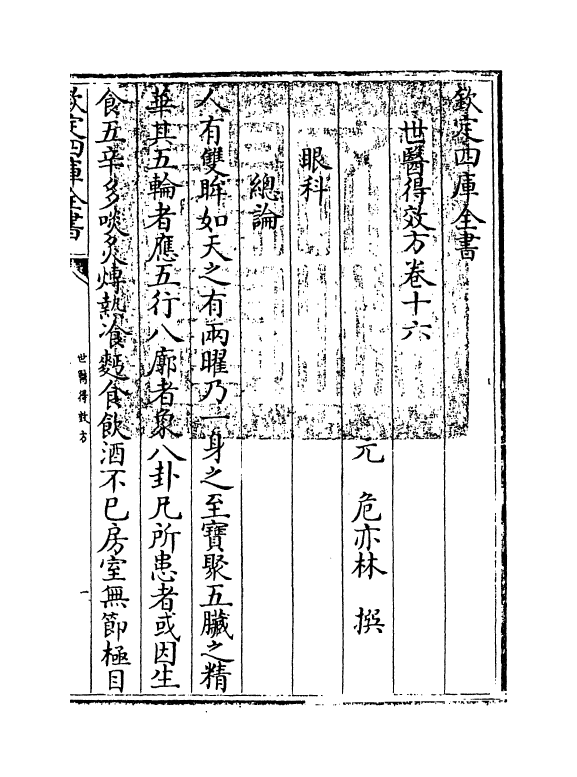 欽定四庫全書
世醫得效方卷十六
元 危亦林 撰
眼科
總論
人有雙眸如天之有兩曜乃一身之至寳聚五臟之精
華其五輪者應五行八廓者象八卦凡所患者或因生
食五辛多啖炙煿熱飡麪食飲酒不已房室無節極目
欽定四庫全書
世醫得效方
一